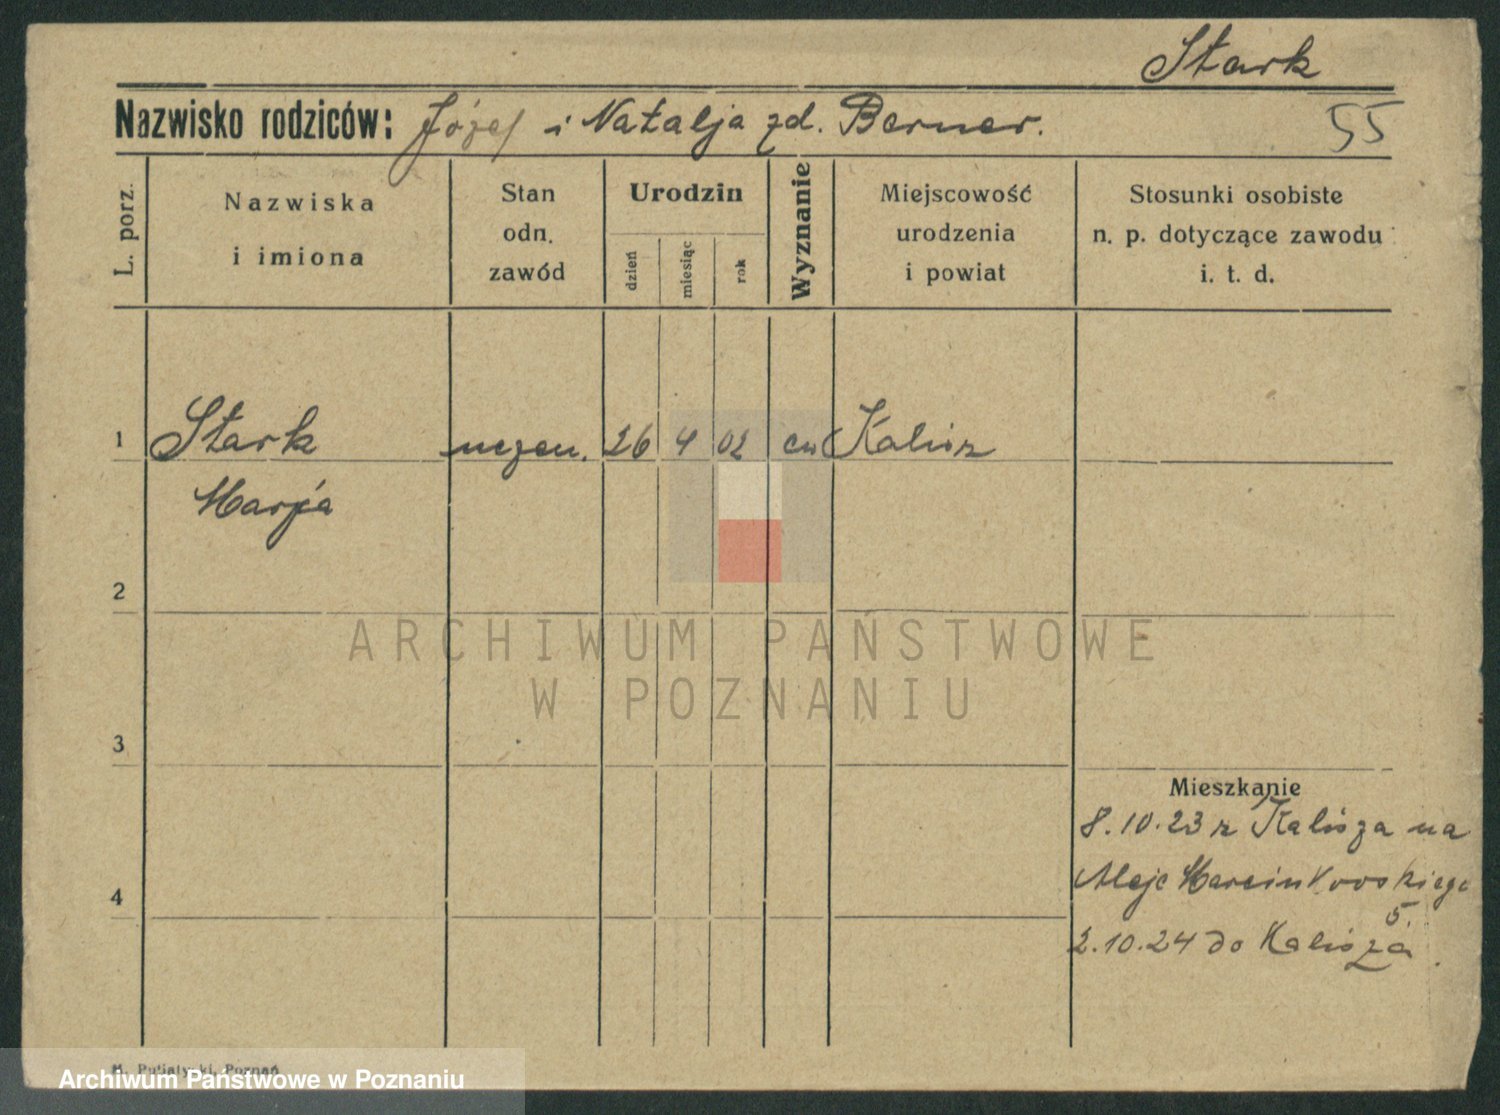 Stark
Nazwisko rodziców: Józef i Natalja zd. Berner.
55
L. porz.
Nazwiska
i imiona
Stan
odn.
zawód
Urodzin
dzień
miesiąc
rok
Wyznanie
Miejscowość
urodzenia
i powiat
Stosunki osobiste
n. p. dotyczące zawodu
i. t. d.
1 Stark uczen. 26 4 02 ew Kalisz
Marja
2
ARCHIWUM PAŃSTWOWE
W POZNANIU
3
Mieszkanie
8.10.23 z Kalisza na
4
Aleje Marcinkowskiego
5.
2.10.24 do Kalisza.
Poznań
Archiwum Państwowe w Poznaniu